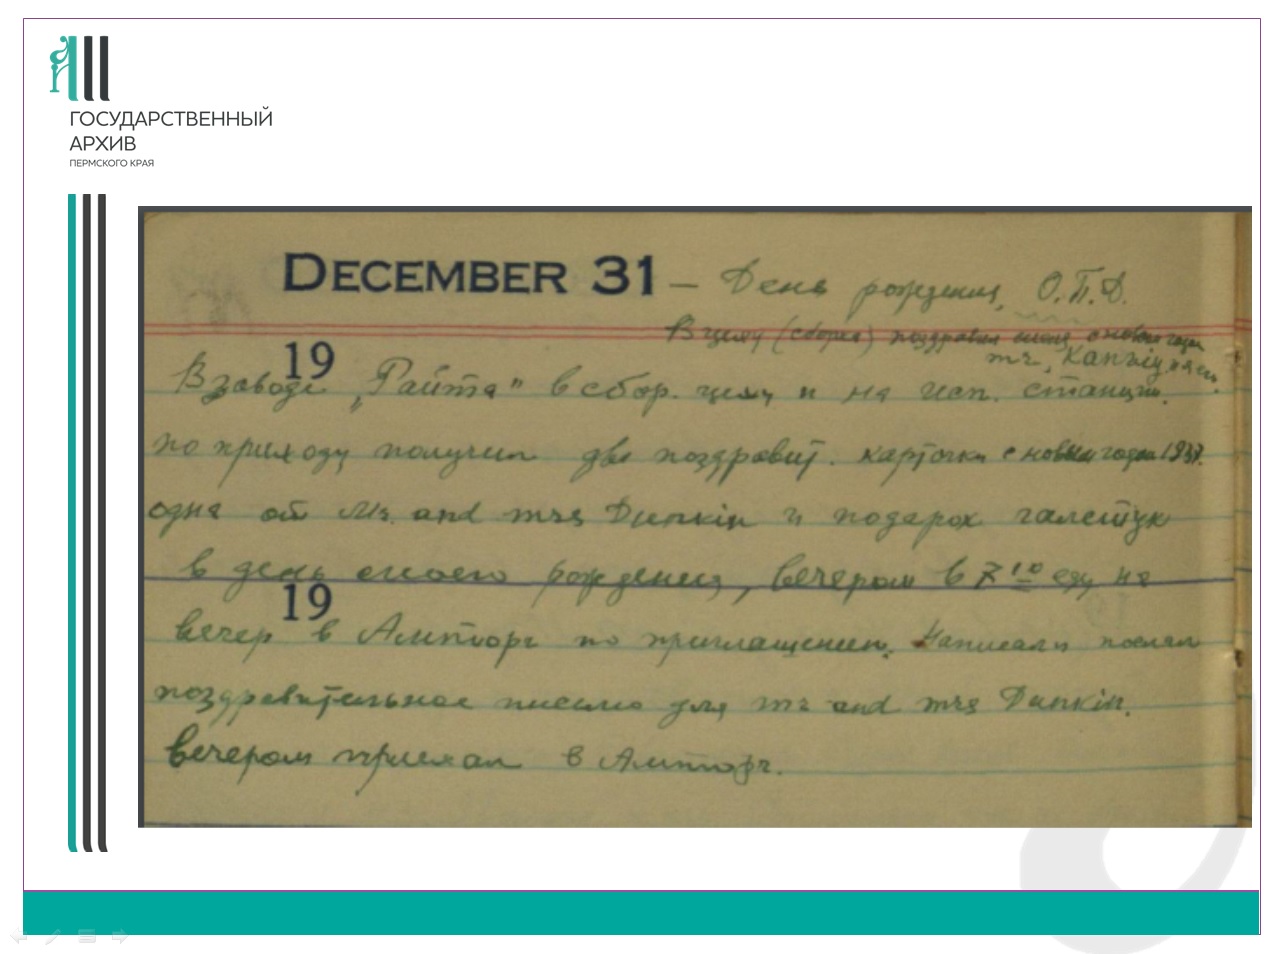 ГОСУДАРСТВЕННЫЙ
АРХИВ
ПЕРМСКОГО КРАЯ
DECEMBER 31 — День рождения О.П.Д.
В цеху (сборка) поздравил меня с новым годом
mr.
19
В заводе „Райта" в сбор. цеху и на исп. станции.
по приходу получил две поздравит. карточки с новым годом 1937.
одна от Mr. and mrs Dunkin и подарок галстук
в день моего рождения, вечером в 7 10 еду на
19
вечер в Амторг по приглашению. Написал и послал
поздравительное письмо для mr and mrs Dunkin.
вечером приехал в Амторг.